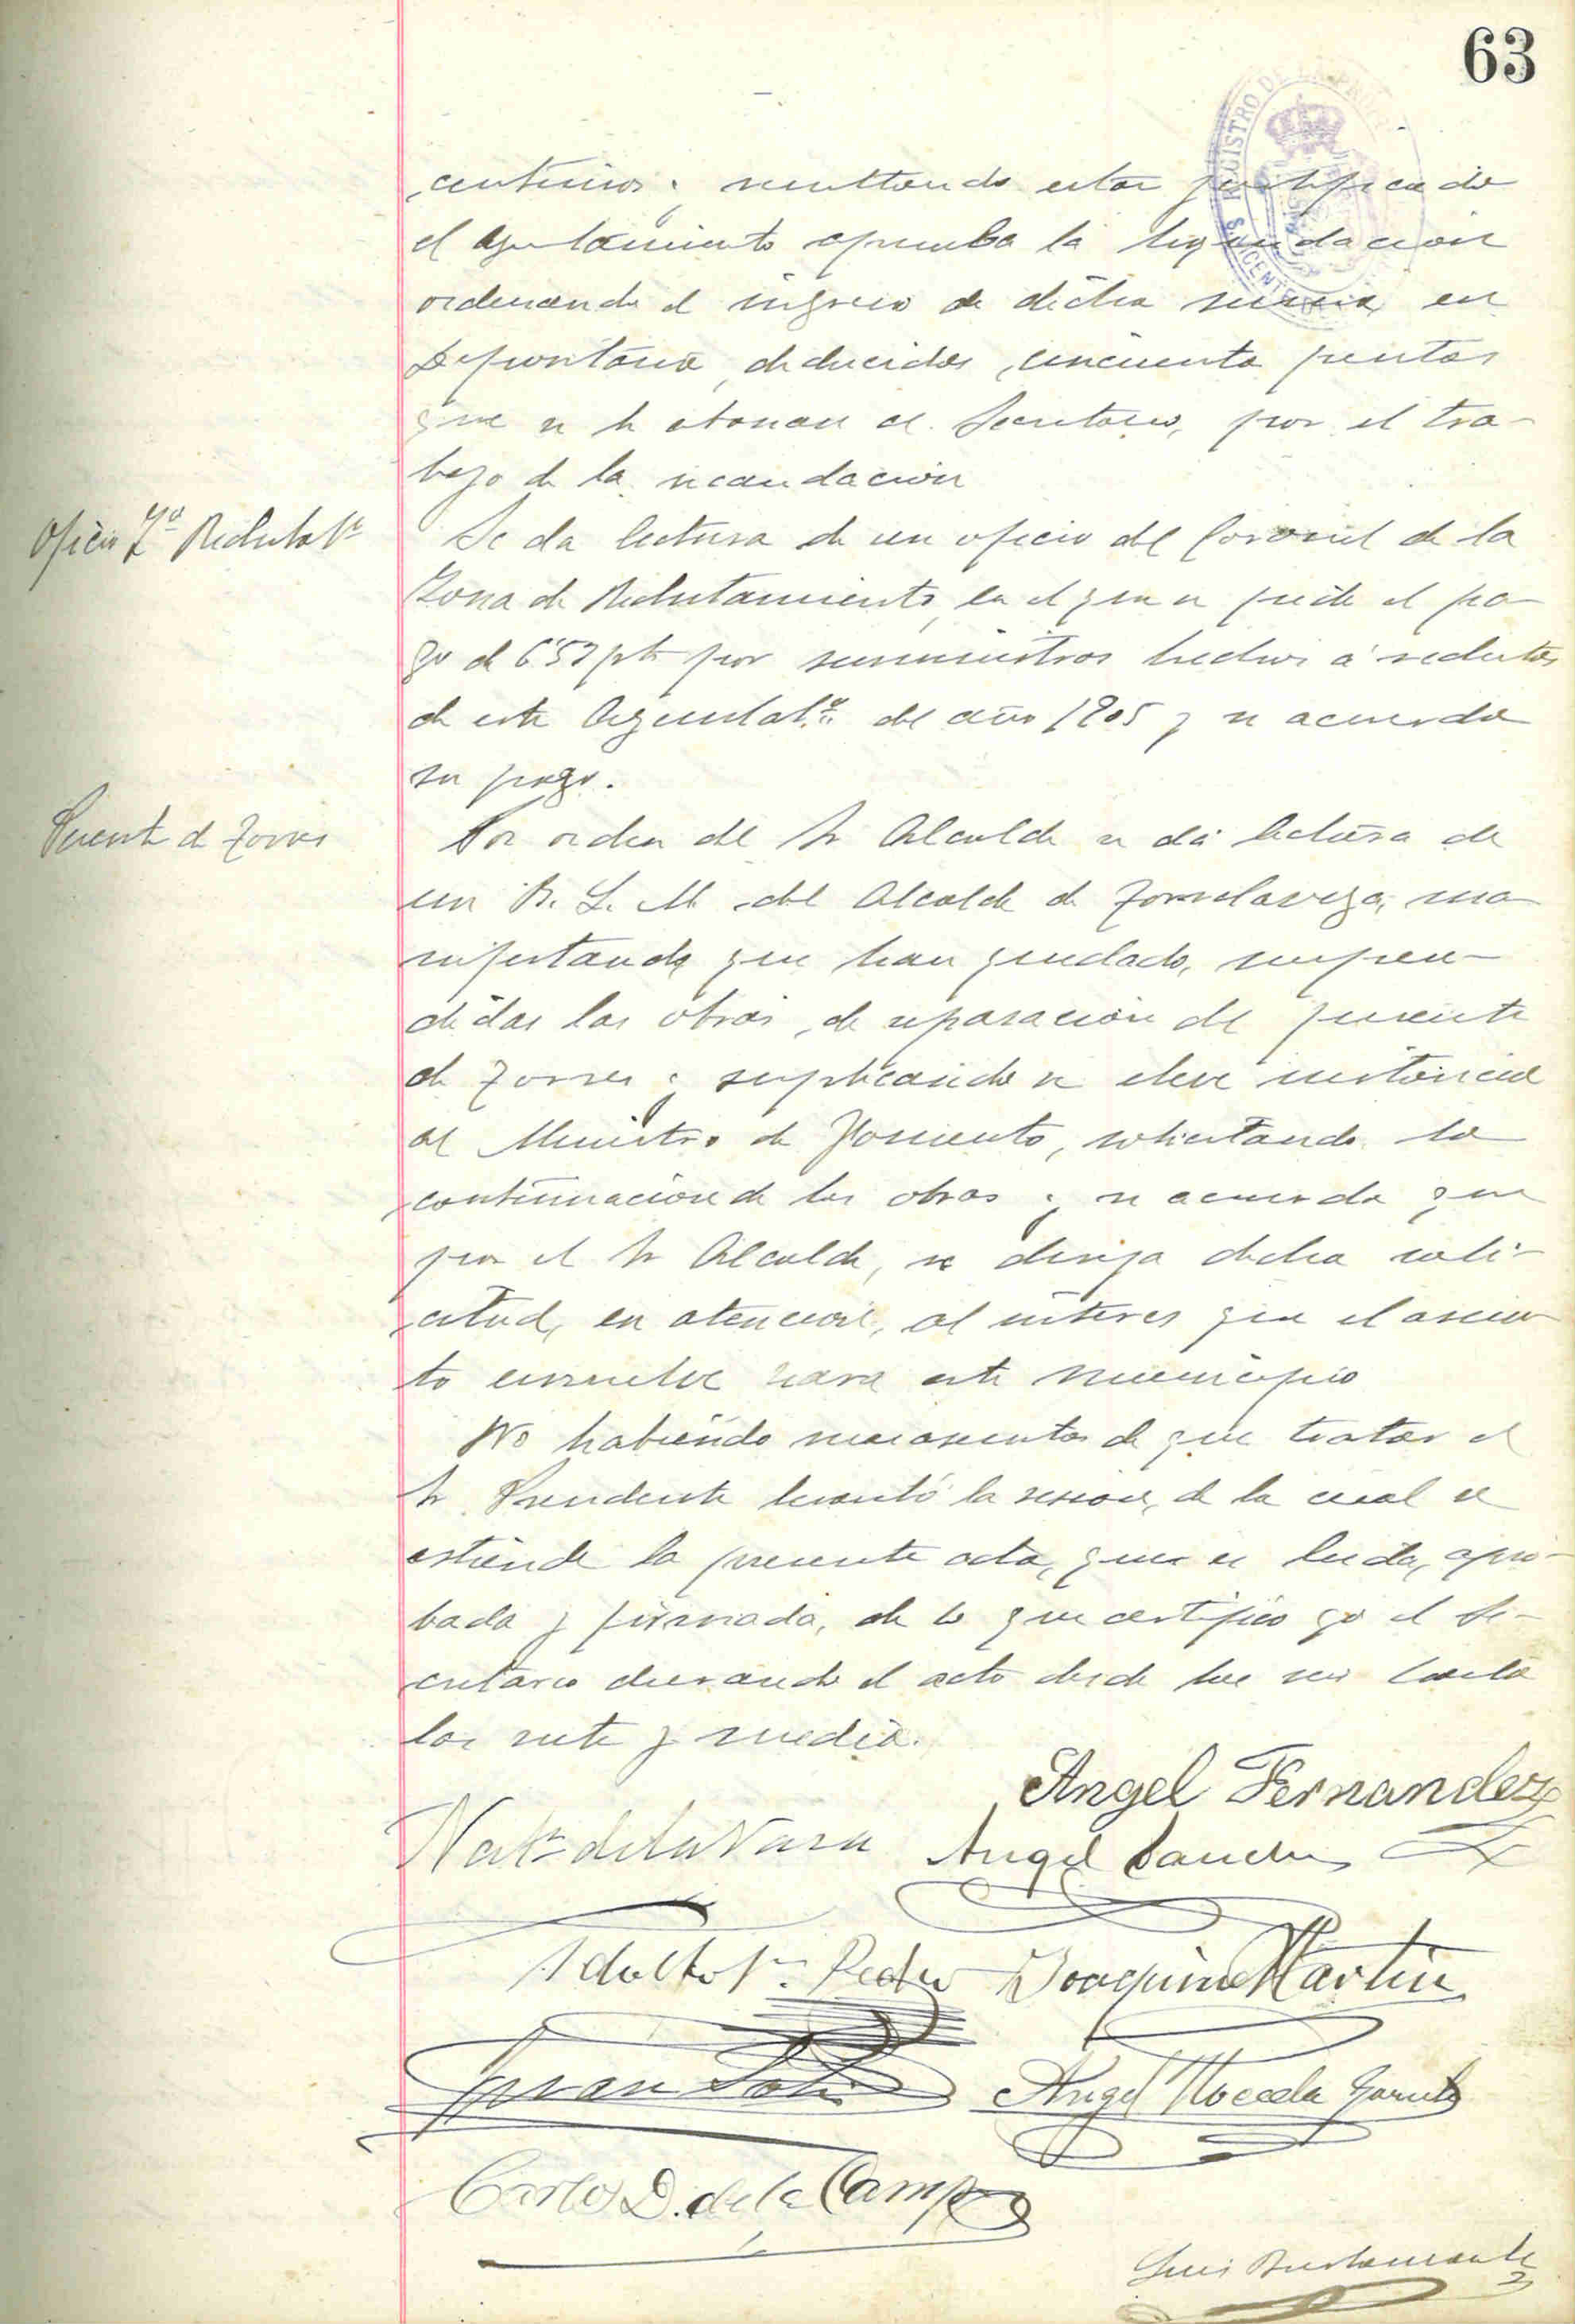 63
centimos; resultando estar justificado
el Ayuntamiento aprueba la liquidacion
ordenando el ingreso de dicha suma en
Depositaria, deducidas cincuenta pesetas
que se le abonan al Secretario, por el tra-
bajo de la recaudación
Oficio Zª Reclutatº
Se da lectura de un oficio del Coronel de la
Zona de Reclutamiento, en el que se pide el pa-
go de pts por suministros hechos á reclutas
de este Ayuntatº del año 1905 y se acuerda
su pago.
Puente de Torres
Por orden del Sr Alcalde se dá lectura de
un B. L. M. del Alcalde de Torrelavega, ma-
nifestando que han quedado, suspen-
didas las obras, de reparación del puente
de Torres; suplicando se eleve instancia
al Ministro de Fomento, solicitando la
continuacion de las obras; se acuerda que
por el Sr Alcalde, se dirija dicha soli-
citud, en atencion, al interes que el asun-
to envuelve para este municipio
No habiendo mas asuntos de que tratar el
Sr. Presidente levantó la sesion, de la cual se
estiende la presente acta, que es leida, apro-
bada y firmada, de lo que certifico yo el Se-
cretario durando el acto desde las seis hasta
las siete y media.
Angel Fernandez
de la Vara Angel Sanchez
Adolfo Joaquin Martin
Juan Angel Noceda
Carlos D. de la Campa
Luis Bustamante
REGISTRO DE